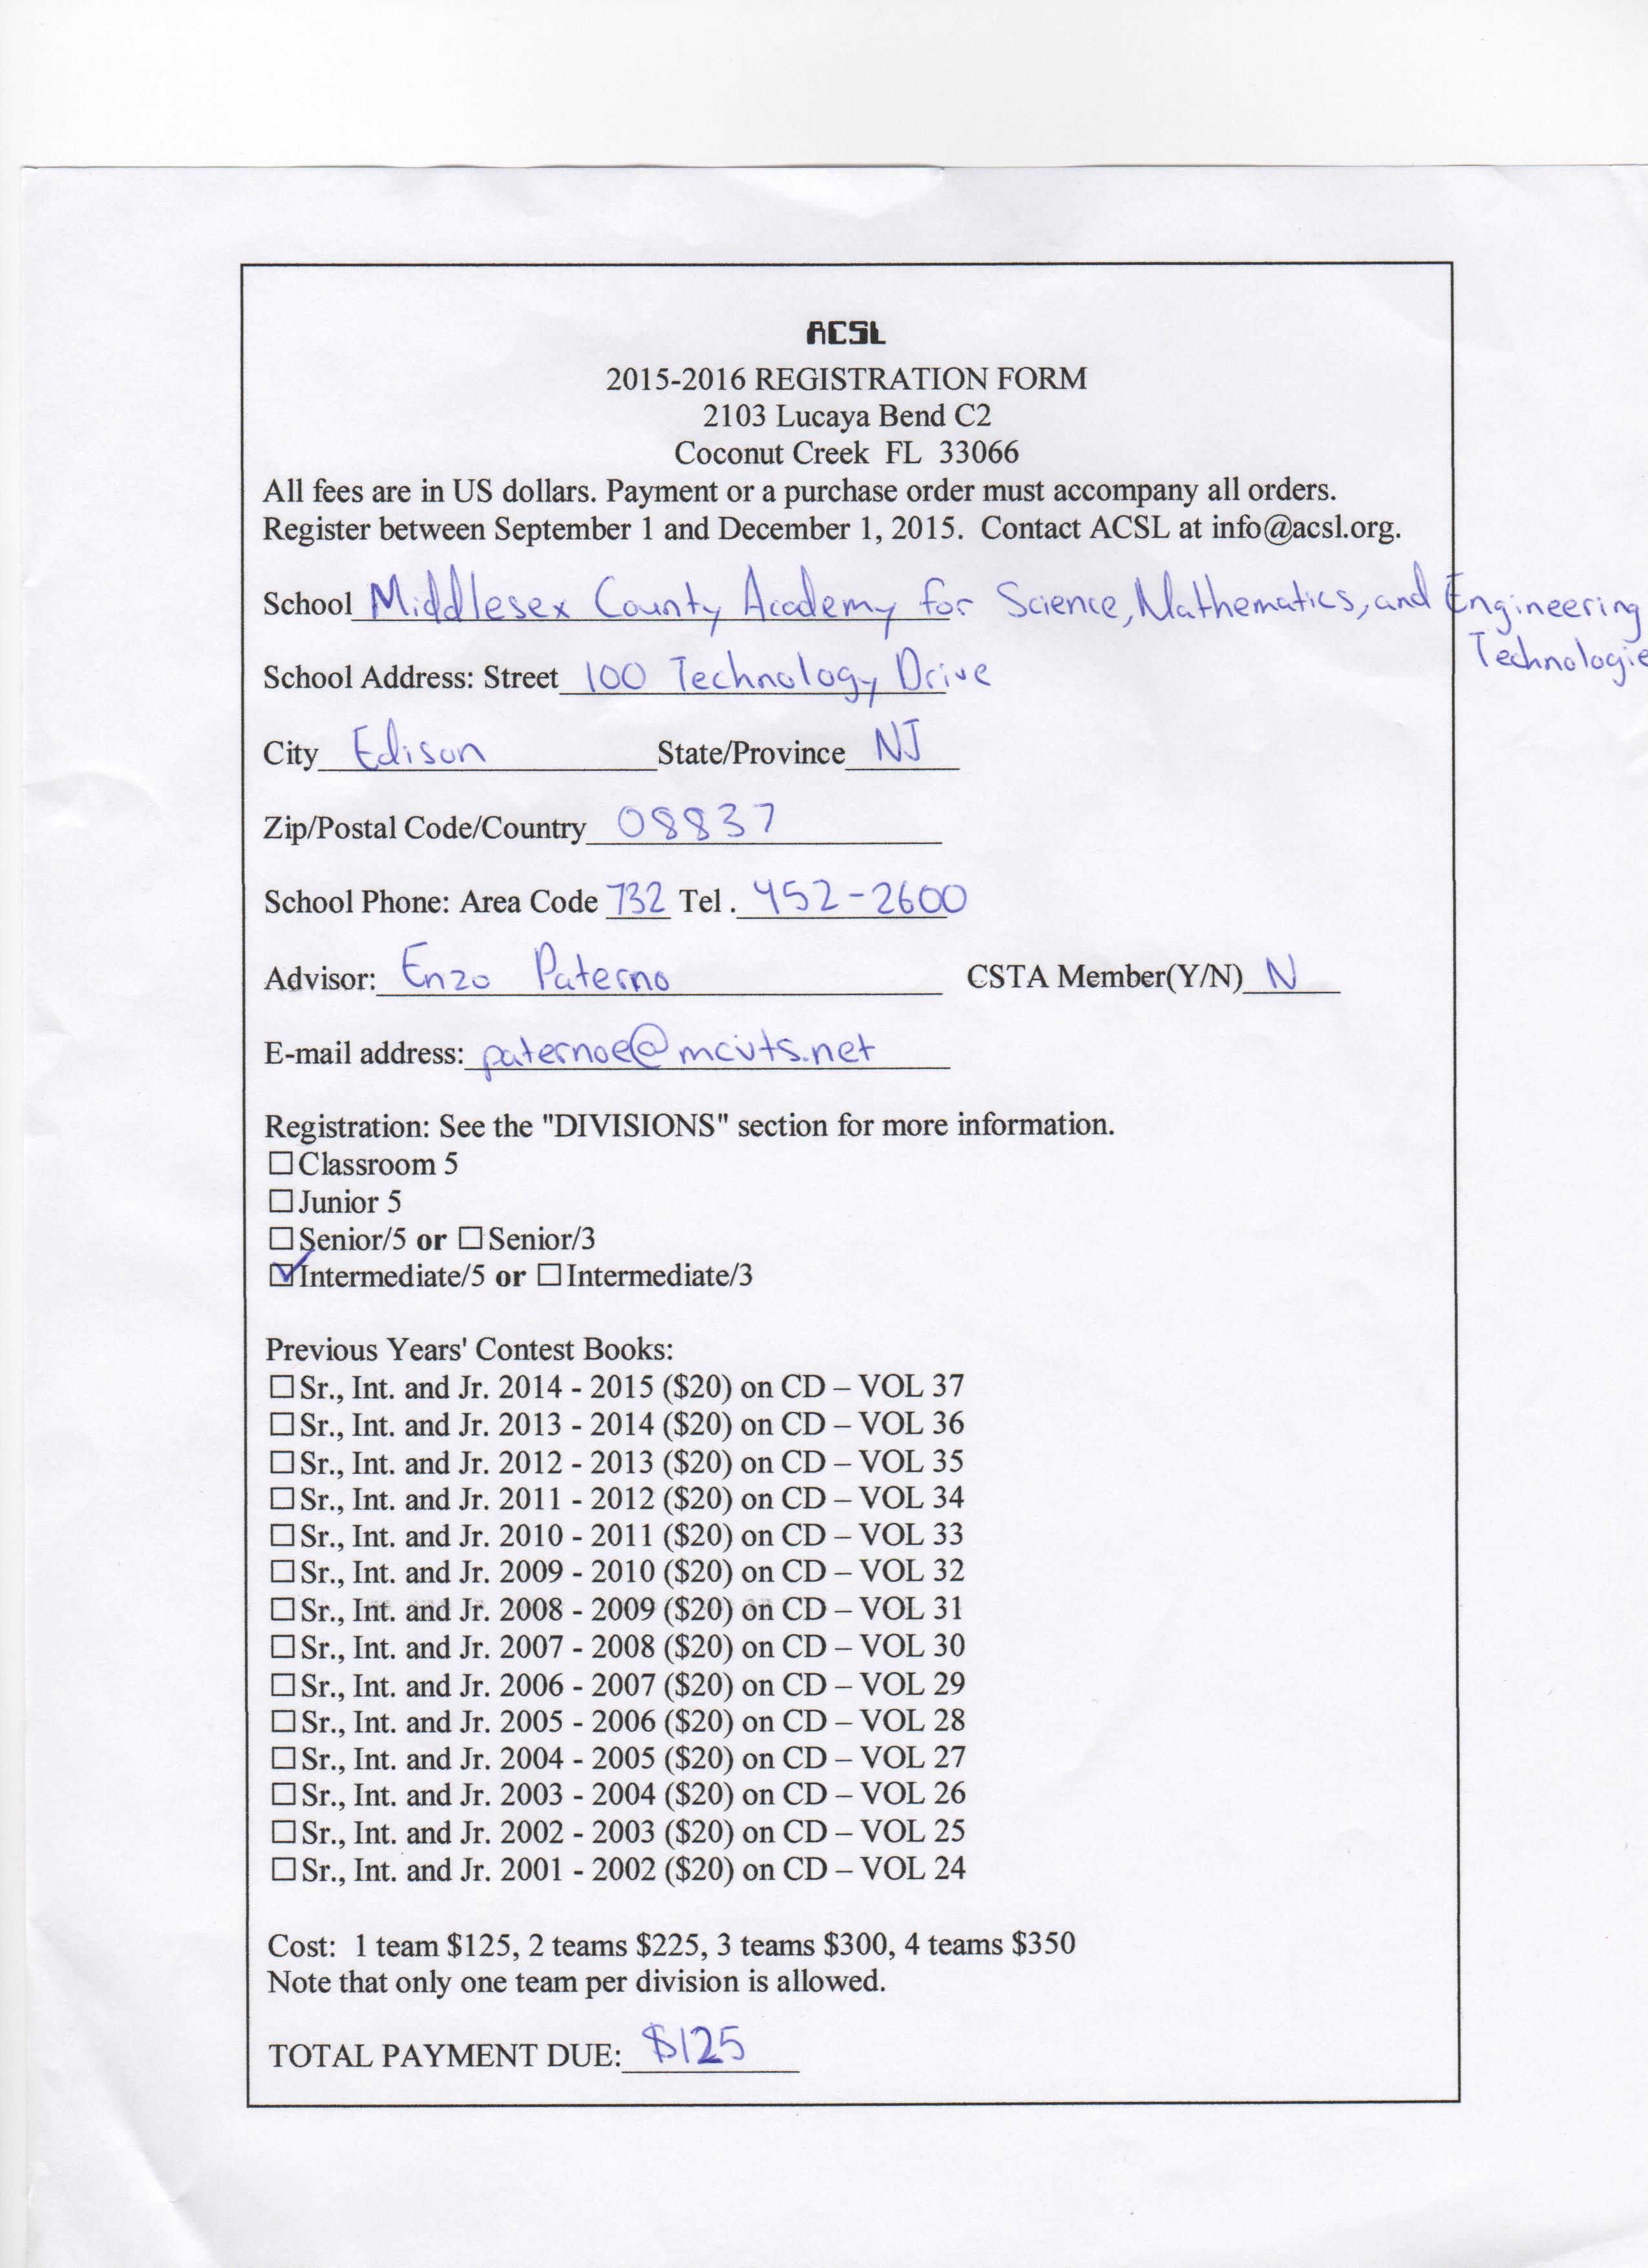 ACSL
2015-2016 REGISTRATION FORM
2103 Lucaya Bend C2
Coconut Creek FL 33066
All fees are in US dollars. Payment or a purchase order must accompany all orders.
Register between September 1 and December 1, 2015. Contact ACSL at info@acsl.org.
School Middlesex County Academy for Science, Mathematics, and Engineering
Technologie
School Address: Street 100 Technology Drive
City Edison State/Province NJ
Zip/Postal Code/Country 08837
School Phone: Area Code 732 Tel . 452-2600
Advisor: Enzo Paterno CSTA Member(Y/N) N
E-mail address: paternoe@mcvts.net
Registration: See the "DIVISIONS" section for more information.
☐ Classroom 5
☐ Junior 5
☐ Senior/5 or ☐ Senior/3
☑ Intermediate/5 or ☐ Intermediate/3
Previous Years' Contest Books:
☐ Sr., Int. and Jr. 2014 - 2015 ($20) on CD – VOL 37
☐ Sr., Int. and Jr. 2013 - 2014 ($20) on CD – VOL 36
☐ Sr., Int. and Jr. 2012 - 2013 ($20) on CD – VOL 35
☐ Sr., Int. and Jr. 2011 - 2012 ($20) on CD – VOL 34
☐ Sr., Int. and Jr. 2010 - 2011 ($20) on CD – VOL 33
☐ Sr., Int. and Jr. 2009 - 2010 ($20) on CD – VOL 32
☐ Sr., Int. and Jr. 2008 - 2009 ($20) on CD – VOL 31
☐ Sr., Int. and Jr. 2007 - 2008 ($20) on CD – VOL 30
☐ Sr., Int. and Jr. 2006 - 2007 ($20) on CD – VOL 29
☐ Sr., Int. and Jr. 2005 - 2006 ($20) on CD – VOL 28
☐ Sr., Int. and Jr. 2004 - 2005 ($20) on CD – VOL 27
☐ Sr., Int. and Jr. 2003 - 2004 ($20) on CD – VOL 26
☐ Sr., Int. and Jr. 2002 - 2003 ($20) on CD – VOL 25
☐ Sr., Int. and Jr. 2001 - 2002 ($20) on CD – VOL 24
Cost: 1 team $125, 2 teams $225, 3 teams $300, 4 teams $350
Note that only one team per division is allowed.
TOTAL PAYMENT DUE: $125